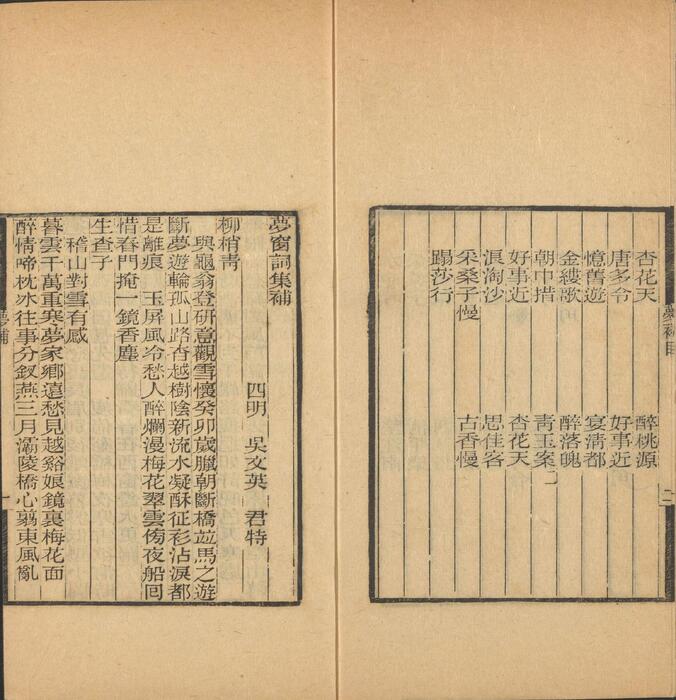 杏花天　醉桃源
唐多令　好事近
憶舊遊　宴清都
金縷歌　醉落魄
朝中措　青玉案二
好事近　杏花天
浪淘沙　思佳客
采桑子慢　古香慢
蹋莎行
夢補目　二
夢窗詞集補
四明　吳文英　君特
柳梢青
與龜翁登研意觀雪懷癸卯歲臘朝斷橋竝馬之遊
斷夢遊輪孤山路杳越樹陰新流水凝酥征衫沾淚都
是離痕　玉屏風冷愁人醉爛漫梅花翠雲傍夜船回
惜春門掩一鏡香塵
生查子
稽山對雪有感
暮雲千萬重寒夢家鄉遠愁見越谿娘鏡裏梅花面
醉情啼枕冰往事分釵燕三月灞陵橋心翦東風亂
夢補　一